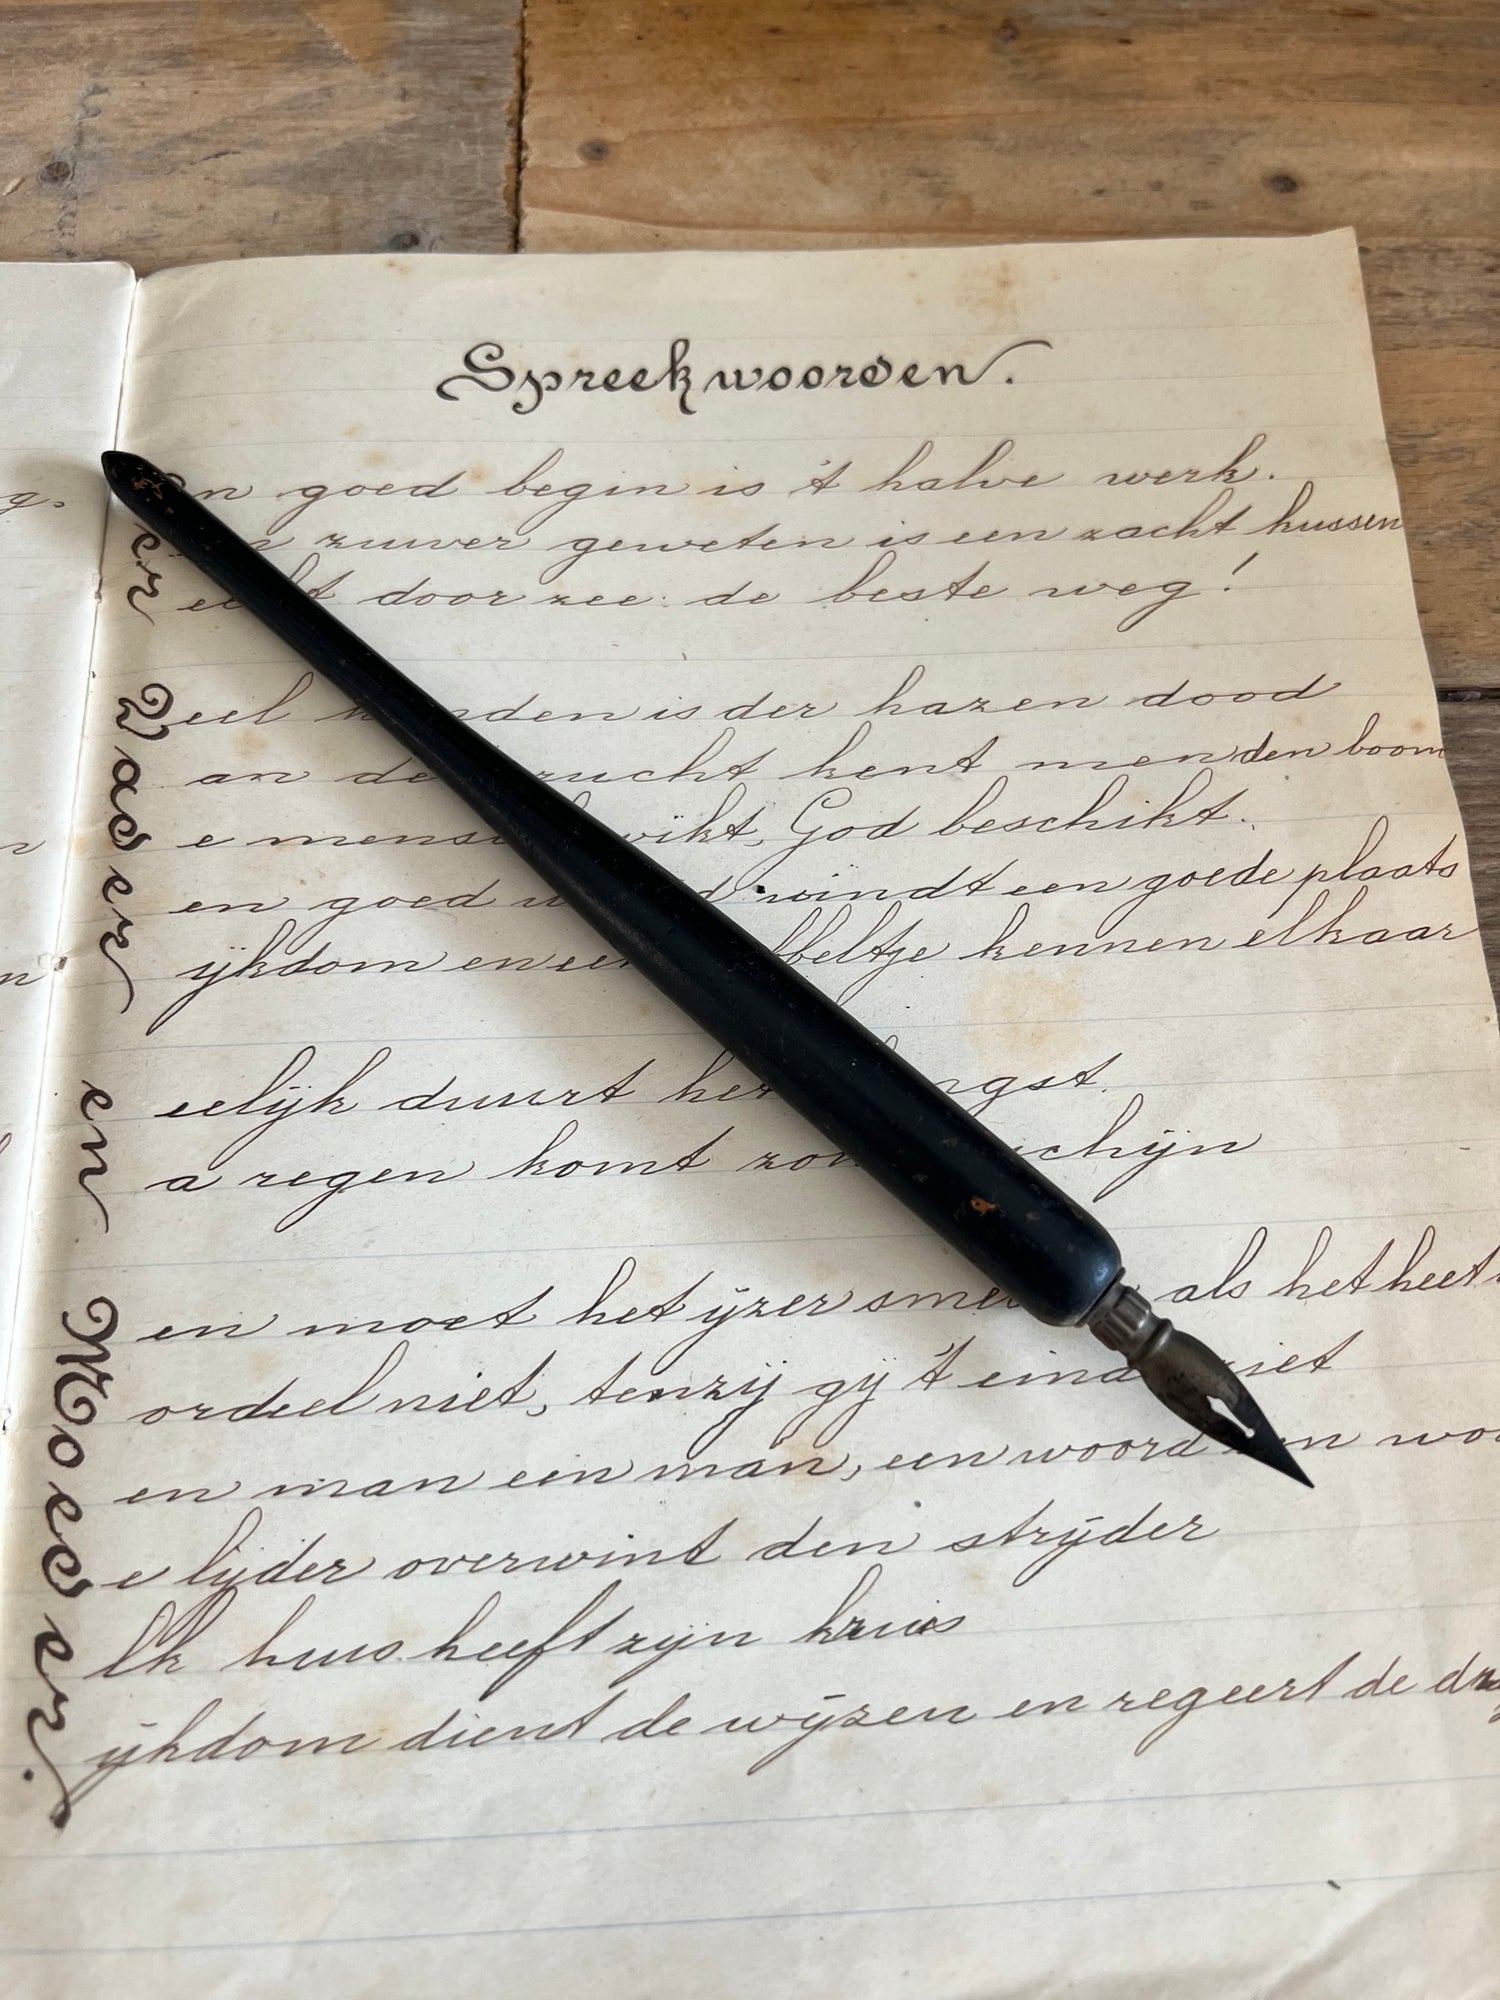 Spreekwoorden.
en goed begin is 't halve werk.
zuiver geweten is een zacht kussen
door zee de beste weg!
eel is der hazen dood
an de kent men den boom
e wikt, God beschikt.
en goed vindt een goede plaats
ijkdom en een kennen elkaar
eelijk duurt het
a regen komt
en moet het ijzer als het heet
ordeel niet, tenzij gij 't ziet
en man een man, een woord
e lijder overwint den strijder
lk huis heeft zijn kruis
ijkdom dient de wijzen en regeert de
er Vader en Moeder.